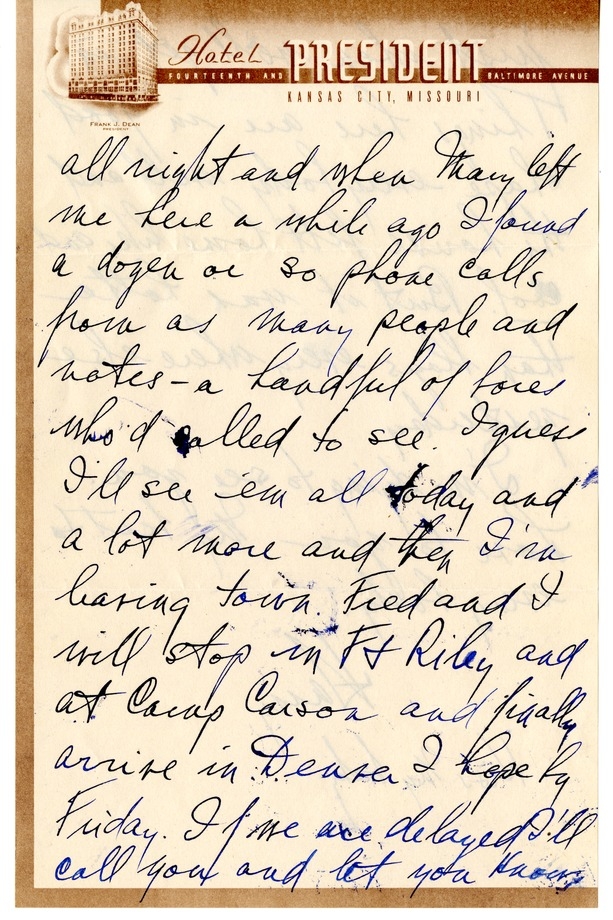 Hotel PRESIDENT
FOURTEENTH AND BALTIMORE AVENUE
KANSAS CITY, MISSOURI
FRANK J. DEAN
PRESIDENT
all night and when Mary left
me here a while ago I found
a dozen or so phone calls
from as many people and
notes - a handful of bores
who'd called to see. I guess
I'll see 'em all today and
a lot more and then I'm
leaving town. Fred and I
will stop in Ft Riley and
at Camp Carson and finally
arrive in Denver I hope by
Friday. If we are delayed I'll
call you and let you know